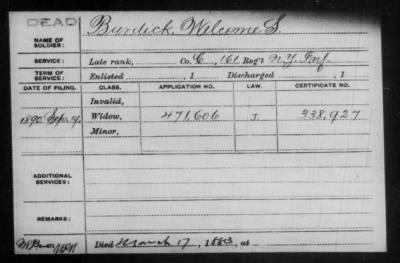 DEAD
Burdick, Welcome S.
NAME OF
SOLDIER:
SERVICE: Late rank, Co. C, 161 Reg't N.Y. Inf.
TERM OF
SERVICE: Enlisted , 1 Discharged , 1
DATE OF FILING. CLASS. APPLICATION NO. LAW. CERTIFICATE NO.
Invalid,
1890 Sep. 4. Widow, 471,606 J. 338,927
Minor,
ADDITIONAL
SERVICES:
REMARKS:
Died March 17, 1883, at